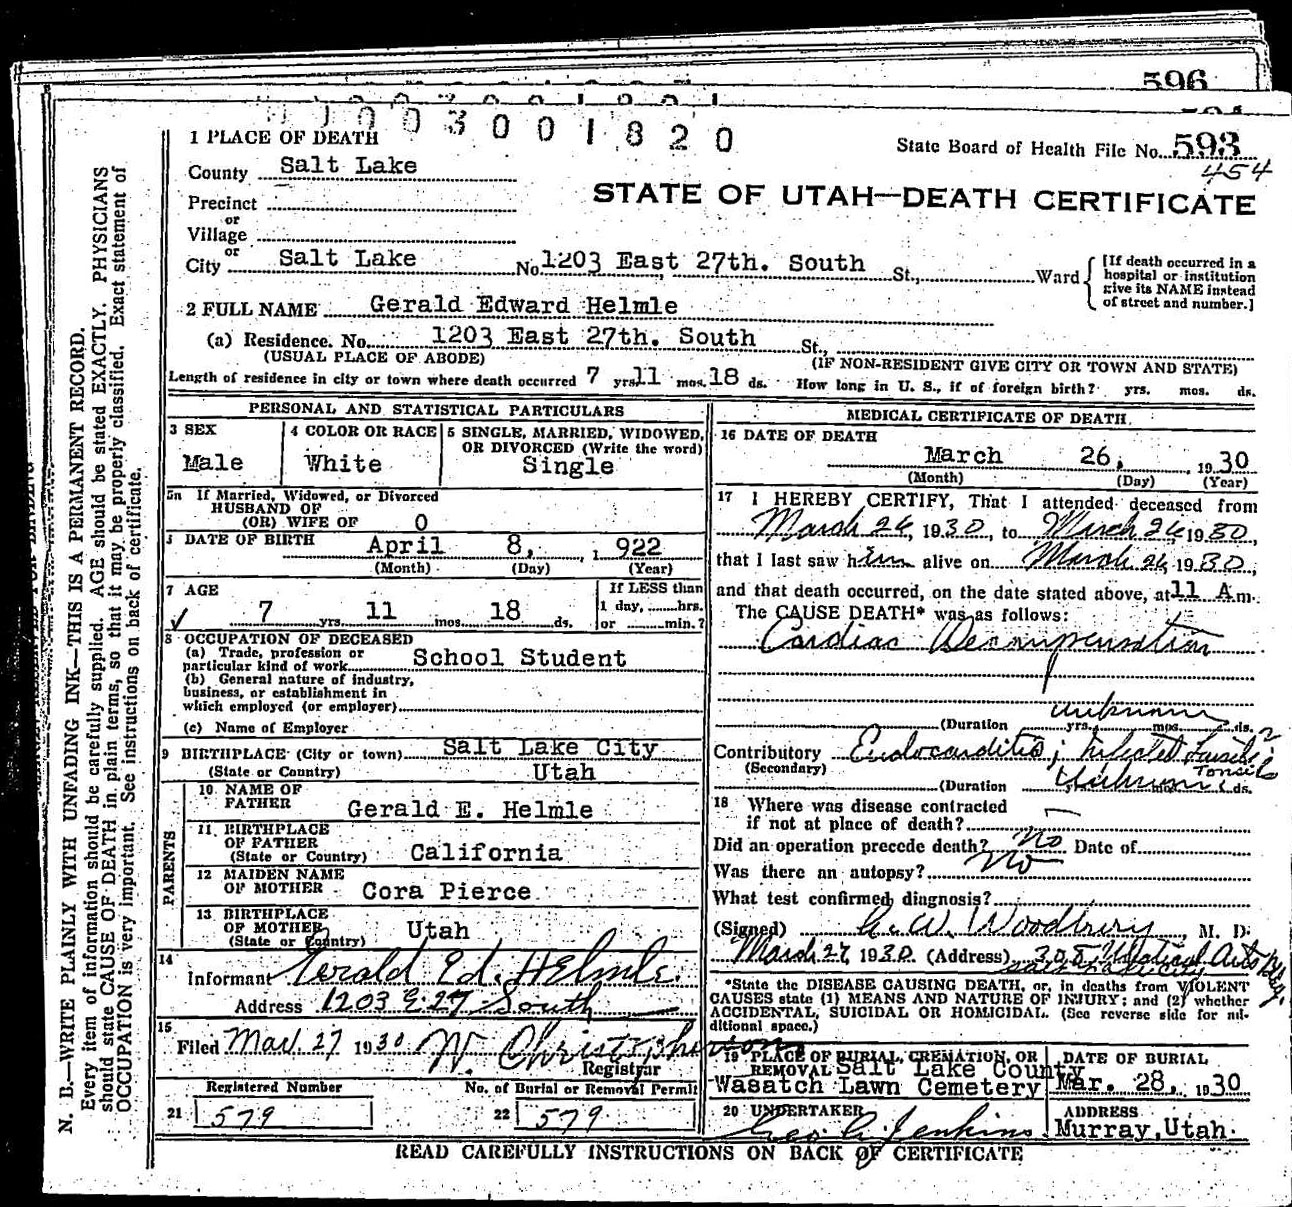 596
1003001820
1 PLACE OF DEATH
State Board of Health File No. 593
454
County Salt Lake
STATE OF UTAH—DEATH CERTIFICATE
Precinct
or
Village
or
City Salt Lake No. 1203 East 27th. South St., Ward
[If death occurred in a
hospital or institution
give its NAME instead
of street and number.]
2 FULL NAME Gerald Edward Helmle
(a) Residence. No. 1203 East 27th. South St.,
(USUAL PLACE OF ABODE) (IF NON-RESIDENT GIVE CITY OR TOWN AND STATE)
Length of residence in city or town where death occurred 7 yrs. 11 mos. 18 ds. How long in U. S., if of foreign birth? yrs. mos. ds.
PERSONAL AND STATISTICAL PARTICULARS
3 SEX
Male
4 COLOR OR RACE
White
5 SINGLE, MARRIED, WIDOWED,
OR DIVORCED (Write the word)
Single
5a If Married, Widowed, or Divorced
HUSBAND OF
(OR) WIFE OF 0
DATE OF BIRTH April 8, 1922
(Month) (Day) (Year)
7 AGE
7 yrs. 11 mos. 18 ds.
If LESS than
1 day, hrs.
or min.?
8 OCCUPATION OF DECEASED
(a) Trade, profession or
particular kind of work School Student
(b) General nature of industry,
business, or establishment in
which employed (or employer)
(c) Name of Employer
9 BIRTHPLACE (City or town) Salt Lake City
(State or Country) Utah
PARENTS
10 NAME OF
FATHER Gerald E. Helmle
11 BIRTHPLACE
OF FATHER
(State or Country) California
12 MAIDEN NAME
OF MOTHER Cora Pierce
13 BIRTHPLACE
OF MOTHER
(State or Country) Utah
14
Informant Gerald Ed. Helmle
Address 1203 E. 27 South
15
Filed Mar. 27 1930 W. Christopherson
Registrar
Registered Number No. of Burial or Removal Permit
21 579 22 579
MEDICAL CERTIFICATE OF DEATH
16 DATE OF DEATH
March 26, 1930
(Month) (Day) (Year)
17 I HEREBY CERTIFY, That I attended deceased from
March 26, 1930, to March 26 1930,
that I last saw him alive on March 26, 1930,
and that death occurred, on the date stated above, at 11 A m.
The CAUSE DEATH* was as follows:
Cardiac Decompensation
unknown
(Duration yrs. mos. ds.
Contributory Endocarditis; Infected
(Secondary) Tonsils
(Duration Unknown ds.
18 Where was disease contracted
if not at place of death?
Did an operation precede death? No Date of
Was there an autopsy? No
What test confirmed diagnosis?
(Signed) W. Woodbury, M. D.
March 27, 1930. (Address) 305 Medical Arts Bldg.
Salt Lake City
*State the DISEASE CAUSING DEATH, or, in deaths from VIOLENT
CAUSES state (1) MEANS AND NATURE OF INJURY; and (2) whether
ACCIDENTAL, SUICIDAL OR HOMICIDAL. (See reverse side for ad-
ditional space.)
19 PLACE OF BURIAL, CREMATION, OR
REMOVAL Salt Lake County
Wasatch Lawn Cemetery
DATE OF BURIAL
Mar. 28, 1930
20 UNDERTAKER
Geo. A. Jenkins
ADDRESS
Murray, Utah.
READ CAREFULLY INSTRUCTIONS ON BACK OF CERTIFICATE
N. B.—WRITE PLAINLY WITH UNFADING INK—THIS IS A PERMANENT RECORD.
Every item of information should be carefully supplied. AGE should be stated EXACTLY. PHYSICIANS
should state CAUSE OF DEATH in plain terms, so that it may be properly classified. Exact statement of
OCCUPATION is very important. See instructions on back of certificate.